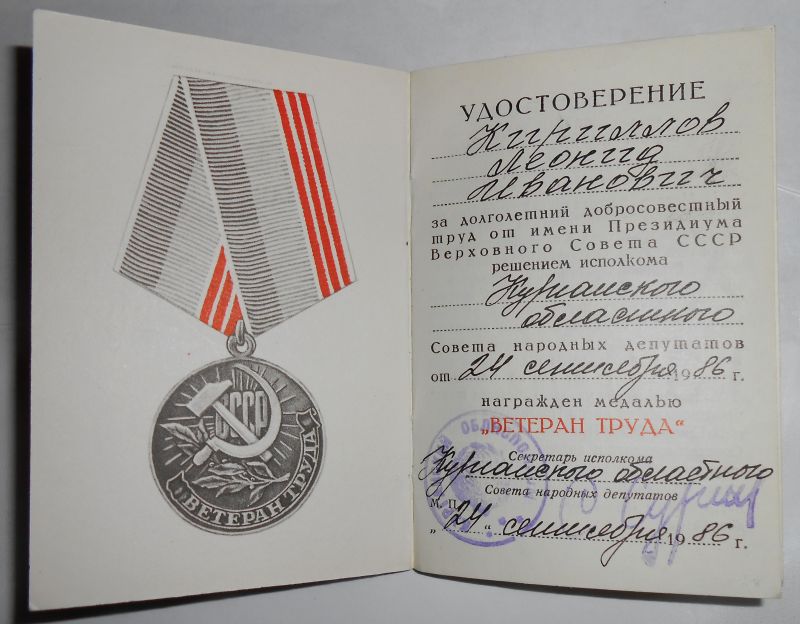 СССР
ВЕТЕРАН ТРУДА
УДОСТОВЕРЕНИЕ
Кириллов
Леонид
Иванович
за долголетний добросовестный
труд от имени Президиума
Верховного Совета СССР
решением исполкома
Курганского
областного
Совета народных депутатов
от 24 сентября 1986 г.
награжден медалью
„ВЕТЕРАН ТРУДА“
Секретарь исполкома
Курганского областного
Совета народных депутатов
М. П.
„24“ сентября 1986 г.